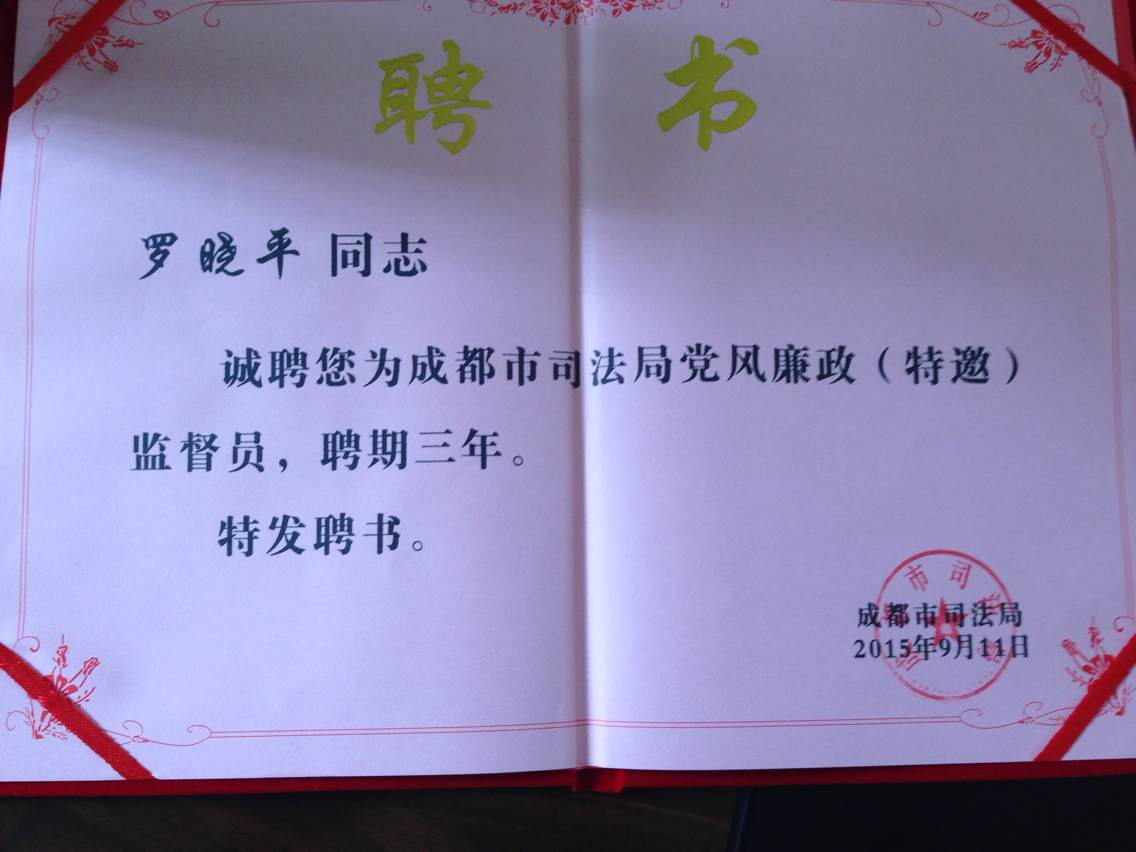 聘 书
罗晓平 同志
诚聘您为成都市司法局党风廉政（特邀）
监督员，聘期三年。
特发聘书。
成都市司法局
2015年9月11日